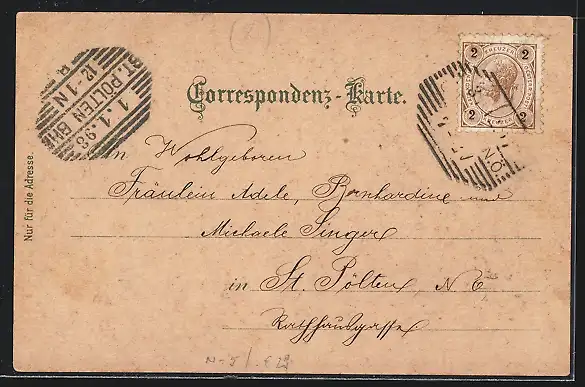 ST. PÖLTEN BHF
1.1.98
12-1N
2 KREUZER 2
2 KREUZER 2
Correspondenz-Karte.
An Wohlgeboren
Fräulein Adele, Bernhardine und
Michaele Singer
in St. Pölten, N. Ö.
Rathhausgasse
Nur für die Adresse.